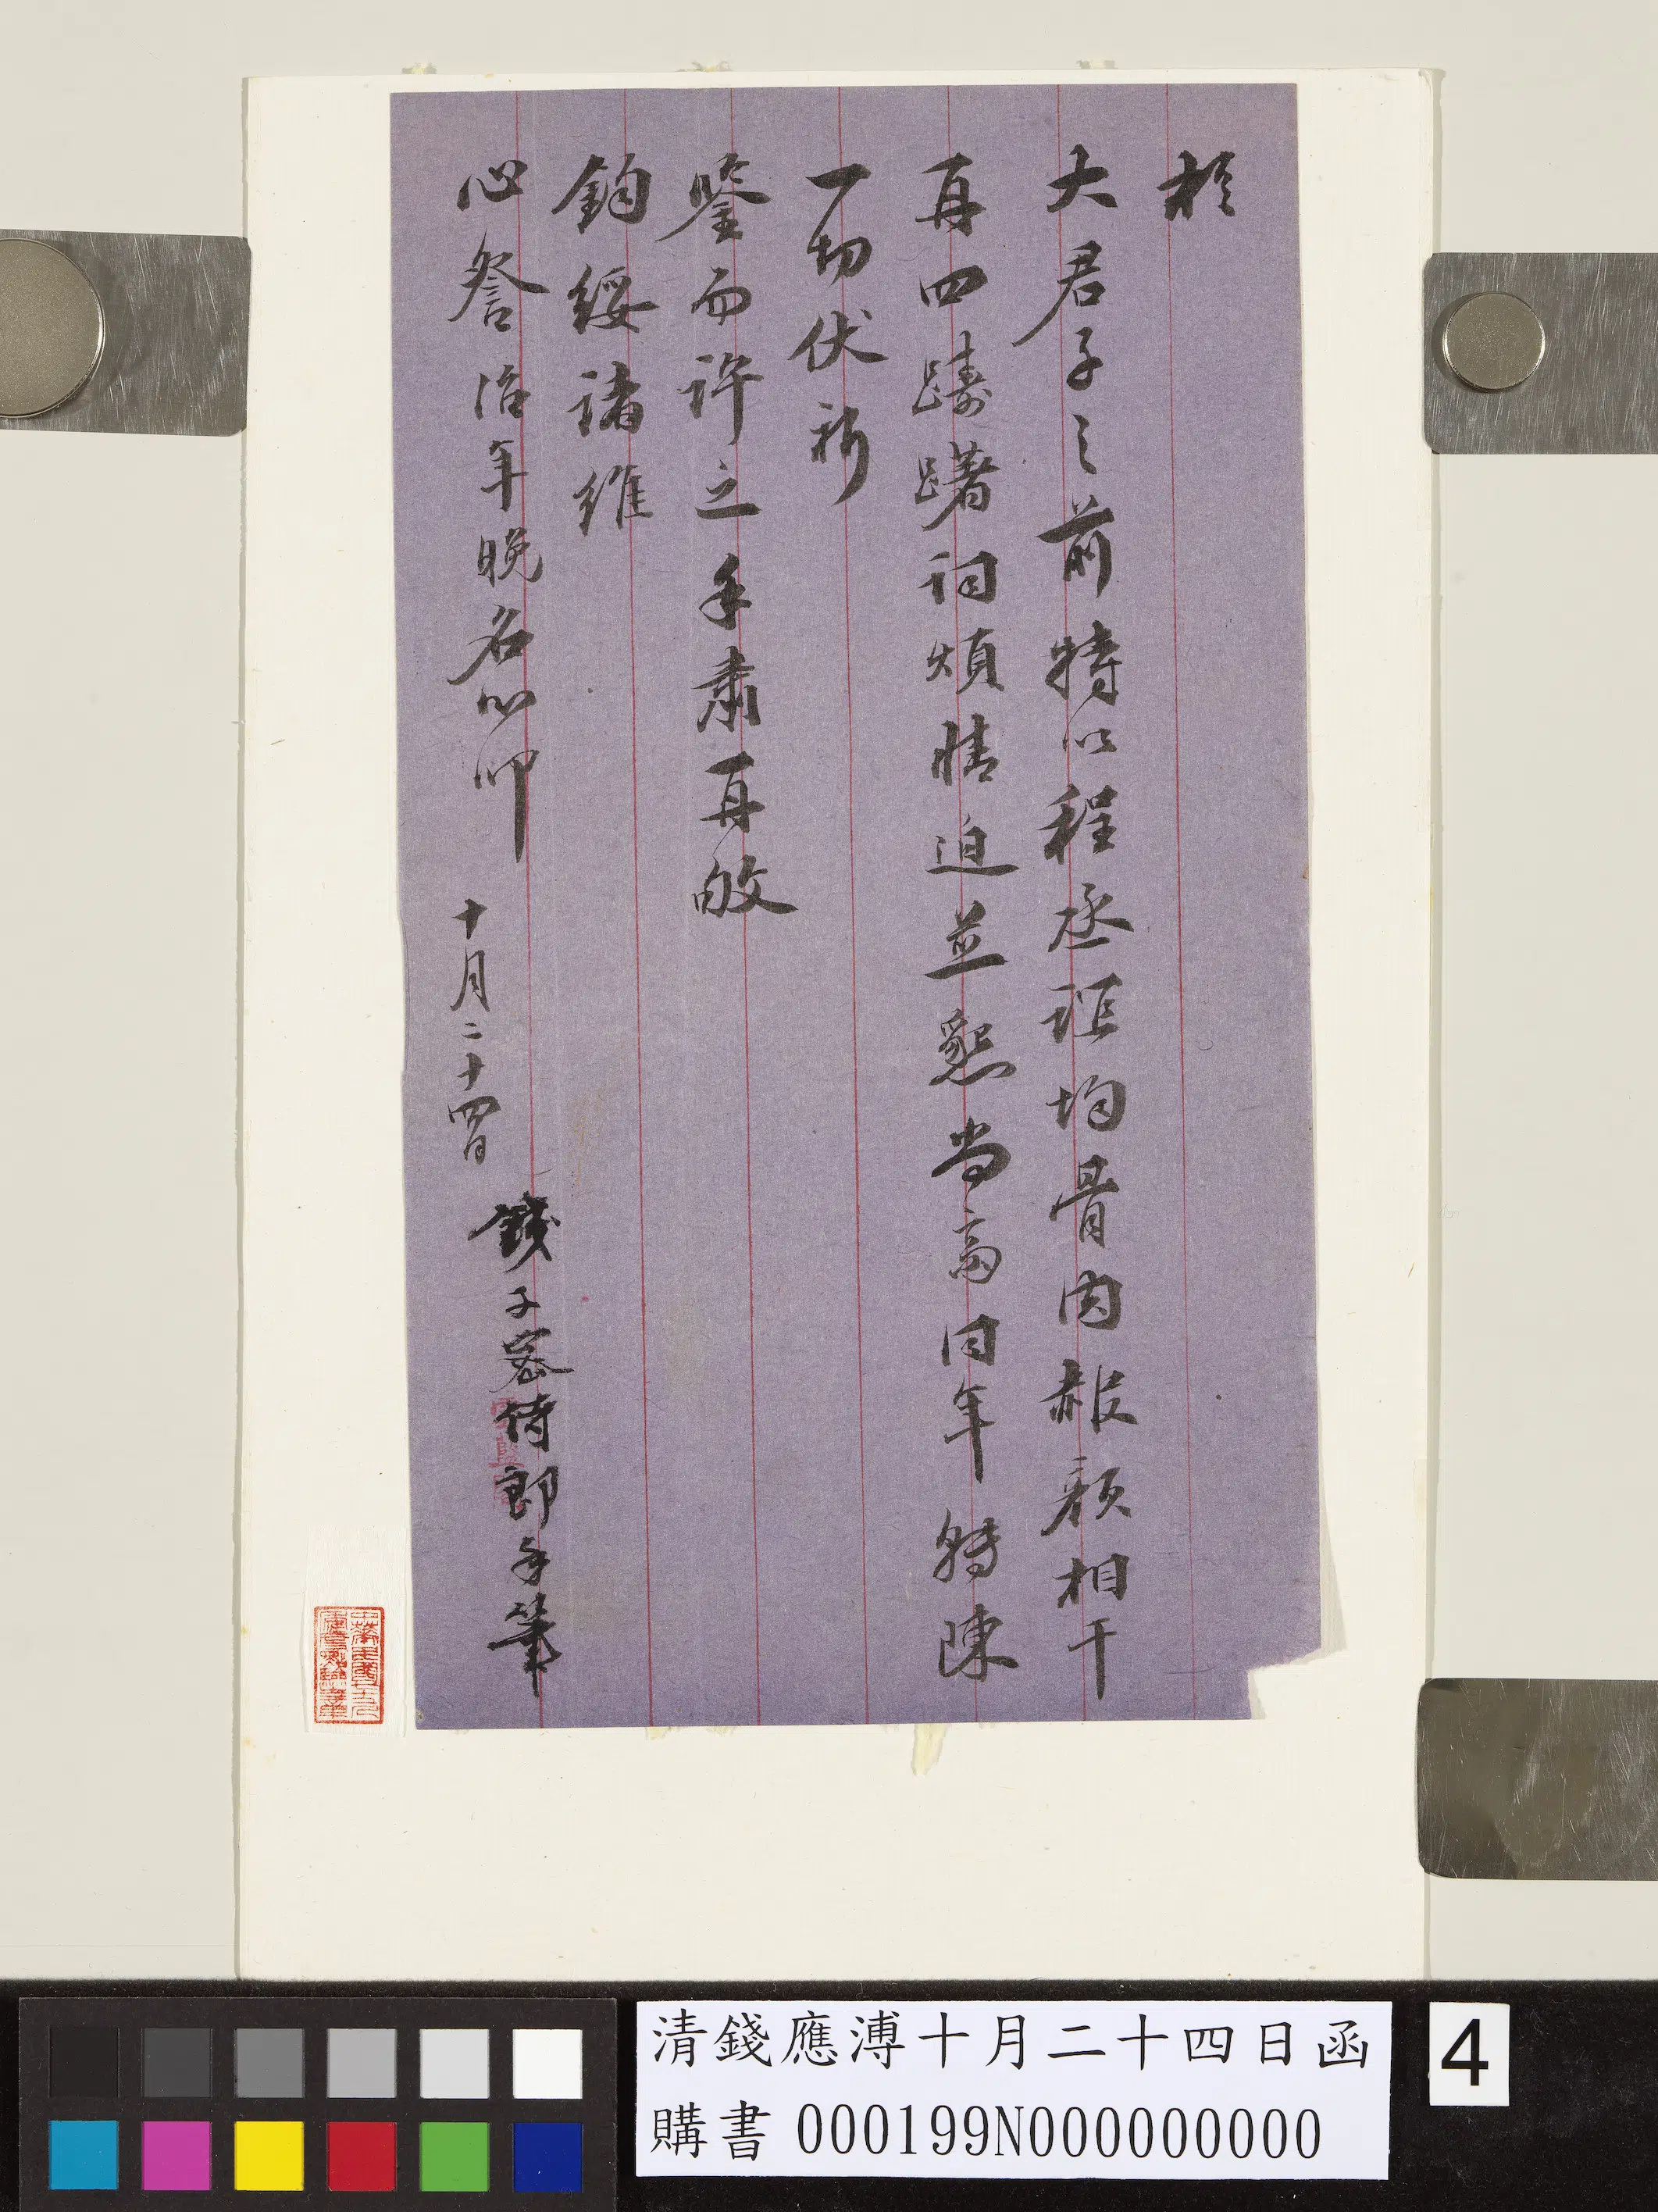 於
大君子之前特以程丞誼均骨肉赧顏相干
再四躊躇詞煩情迫並懇尚齋同年轉陳
一切伏祈
鑒而許之手肅再敂
鈞綏諸維
心詧治年晚名心叩 十月二十四日
錢子密侍郎手筆
清錢應溥十月二十四日函
購書 000199N000000000
4